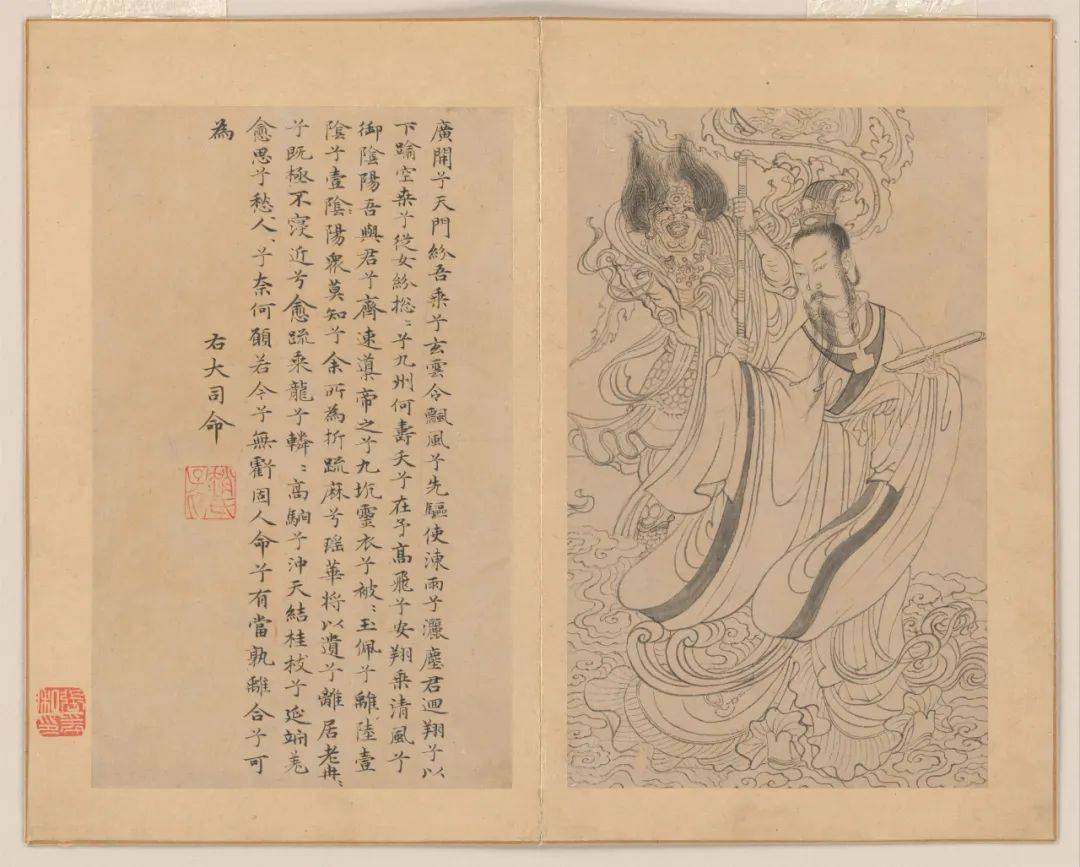 廣開兮天門紛吾乘兮玄雲令飄風兮先驅使涷雨兮灑塵君迴翔兮以
下踰空桑兮從女紛捴〻兮九州何壽夭兮在予高飛兮安翔乘清風兮
御陰陽吾與君兮齊速導帝之兮九坑靈衣兮被〻玉佩兮離陸壹
陰兮壹陰陽衆莫知兮余所為折疏麻兮瑤華將以遺兮離居老冉〻
兮既極不寖近兮愈疏乘龍兮轔〻高駉兮沖天結桂枝兮延竚羌
愈思兮愁人〻兮奈何願若今兮無虧固人命兮有當孰離合兮可
為
右大司命
趙氏子昂